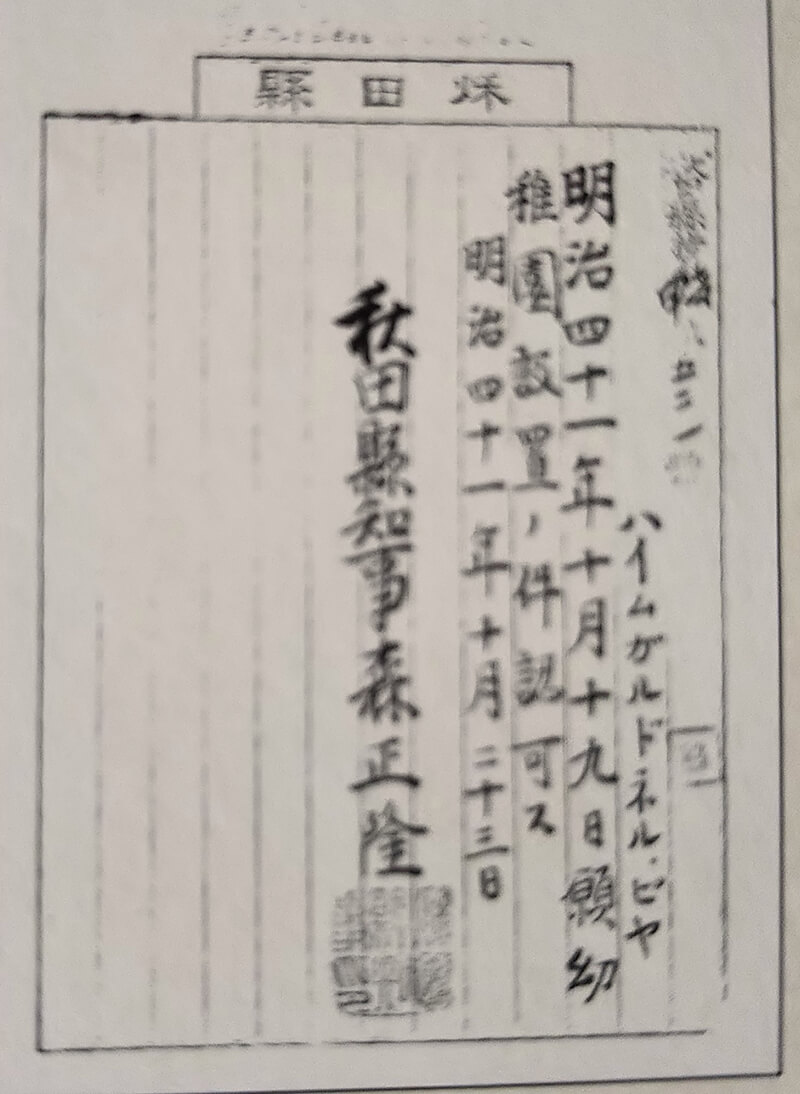 秋田縣
ハイムガルドネル・ピヤ
明治四十一年十月十九日願幼
稚園設置ノ件認可ス
明治四十一年十月二十三日
秋田縣知事森正隆